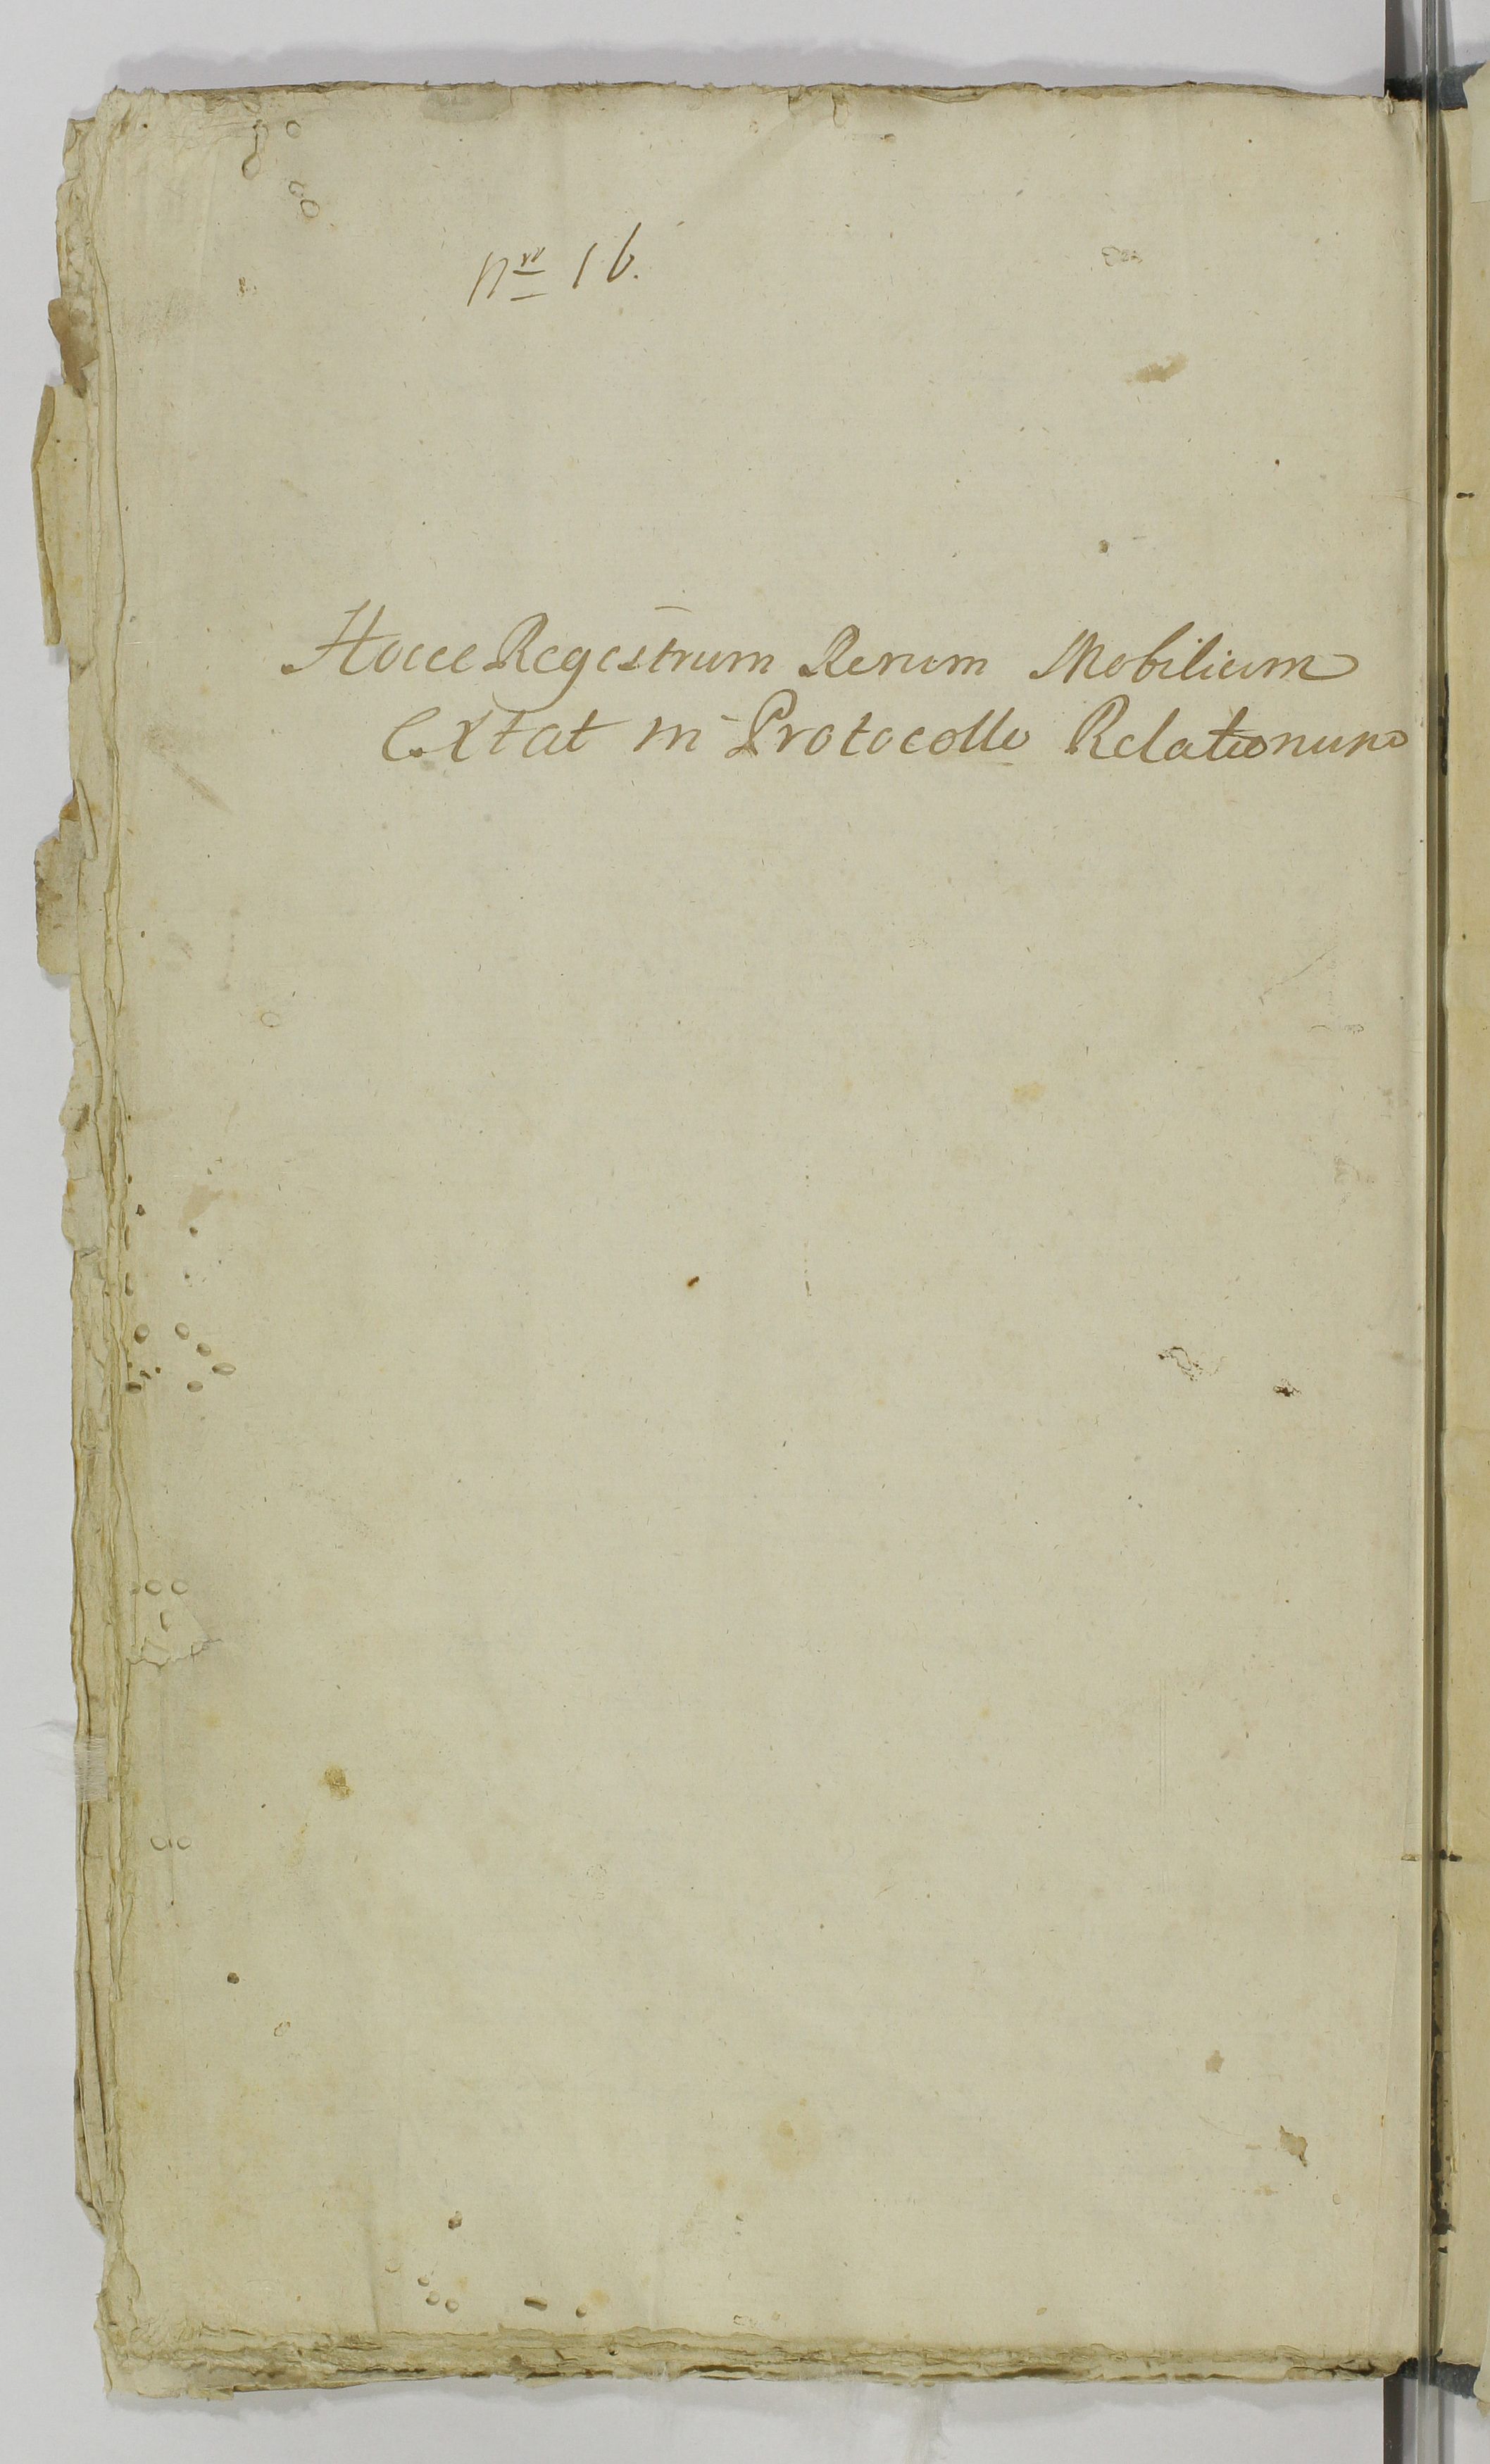 Nro 16.
Hocce Regestrum Rerum Mobilium
Extat in Protocollo Relationum